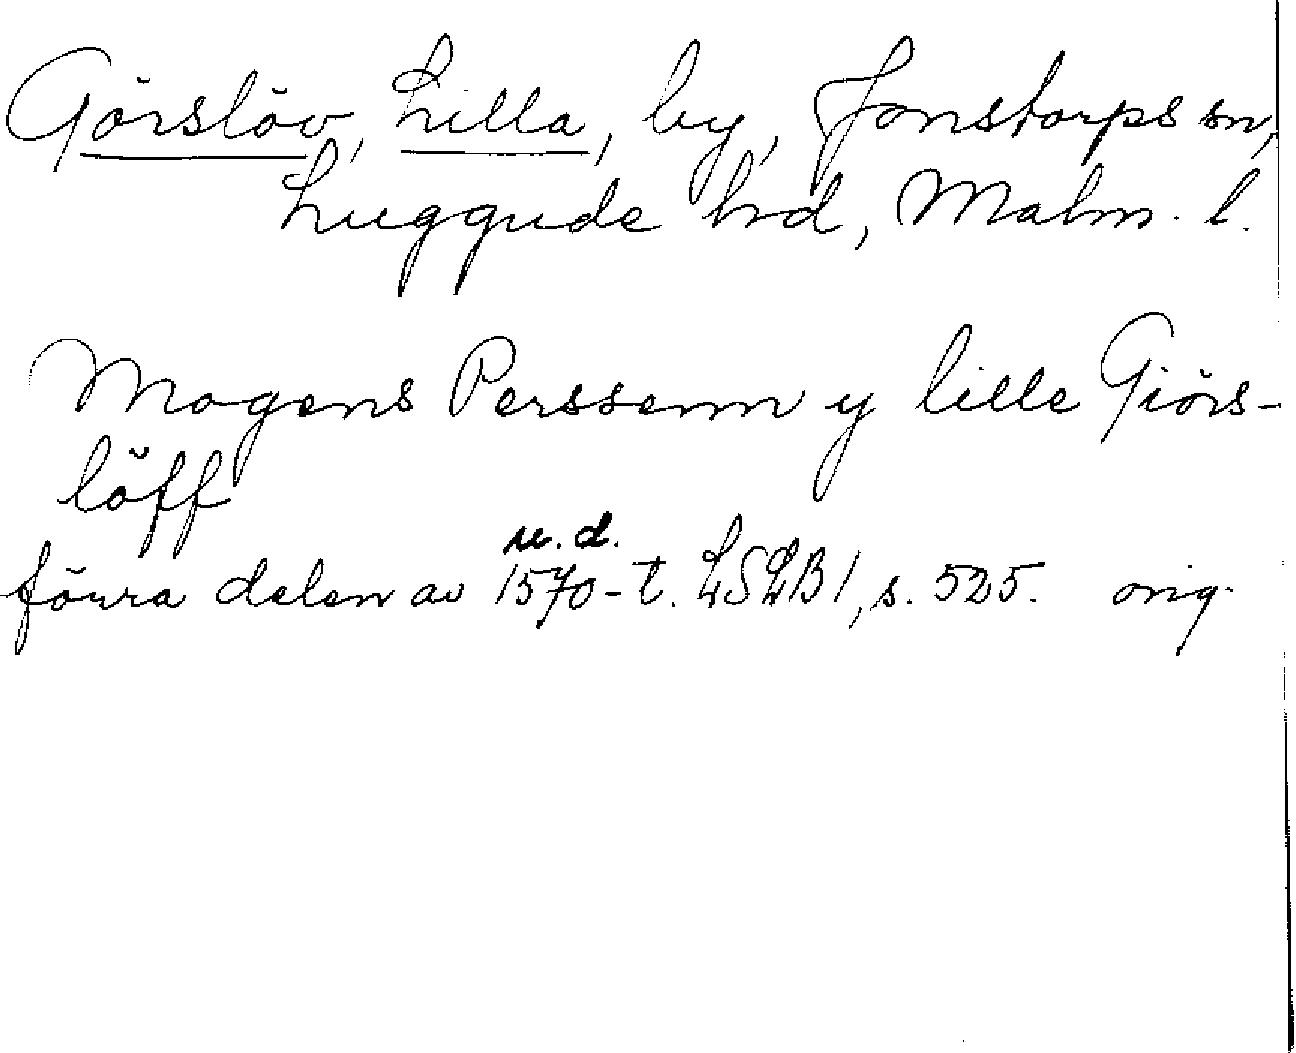 Görslöv, Lilla, by, Jonstorps sn,
Luggude hd, Malm. l.
Mogens Perssenn y lille Giörs-
löff
u. d.
förra delen av 1570-t. LSLB 1, s. 525. orig.